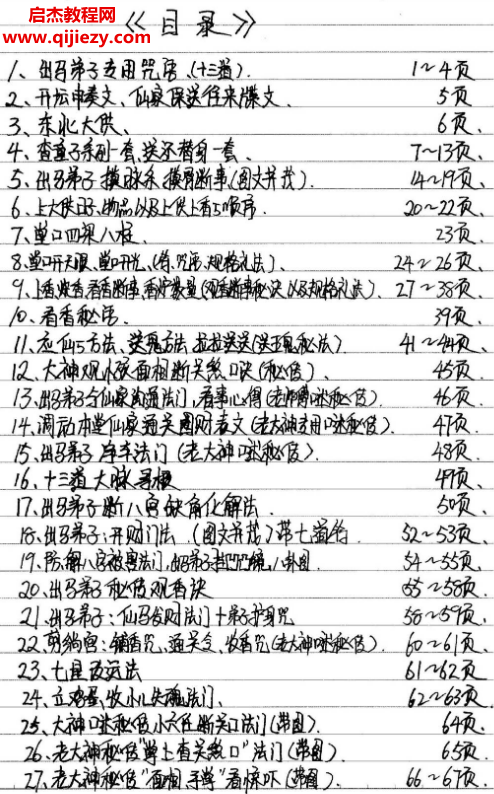 启杰教程网
www.qijiezy.com
《目录》
1、出马弟子专用咒语(十三道). 1~4页
2、开坛申表文、仙家保送任来牒文、 5页
3、东北大供、 6页、
4、查童子系列一套、送还替身一套、 7~13页、
5、出马弟子摸脉杀、摸骨断事(图文并茂). 14~19页、
6、上大供日子、物品以及上供上香的顺序. 20~22页、
7、堂口四梁八柱、 23页、
8、堂口开天眼、堂口开光、(符、咒语、规格礼法)、 24~26页、
9、上香、看香断事、香炉数量、(观香断事秘诀以及规格礼法). 27~38页、
10、看香秘法. 39页、
11、应仙的方法、送鬼方法 (送鬼秘法) 41~44页、
12、大神观小孩面相断关煞口诀(秘传) 45页、
13、出马弟子与仙家沟通法门、看事心得(老师傅口述秘传) 46页、
14、调动本堂仙家通关图财表文(老大神专用口述秘传). 47页、
15、出马弟子 法门(老大神口述秘传) 48页、
16、十三道大脉 49页、
17、出马弟子断八宫缺角化解法 50页、
18、出马弟子:开财门法.(图文并茂)带七道符 52~53页、
19、防解八宫被害法门、出马弟子 八卦图 54~55页、
20、出马弟子秘传观香诀 55~56页、
21、出马弟子:仙马发财法门+弟子护身咒 58~59页、
22、 铺香咒、通关文、收香咒(老大神口述秘传). 60~61页、
23、七星改运法 61~62页
24、立鸡蛋、收小儿失魂法门、 62~63页、
25、大神口述秘传小六壬断关口法门(带图)、 64页、
26、老大神秘传"掌上查关煞口"法门(带图)、 65页、
27、老大神秘传"面相手掌"看惊吓(带图)、 66~67页、